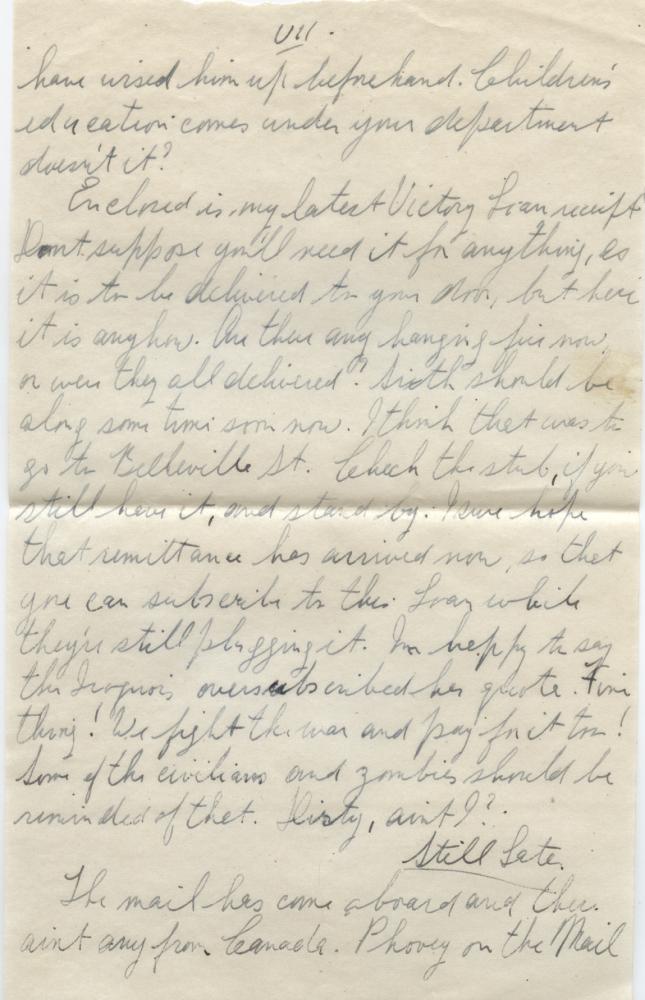 VII.
have wised him up beforehand. Children's
education comes under your department
doesn't it?
Enclosed is my latest Victory Loan receipt
Don't suppose you'll need it for anything, as
it is to be delivered to your door, but here
it is anyhow. Are there any hanging fire now,
or were they all delivered? Sixth should be
along some time soon now. I think that was to
go to Belleville St. Check the stub, if you
still have it, and stand by. I sure hope
that remittance has arrived now, so that
you can subscribe to this Loan while
they're still plugging it. Im happy to say
the Iroquois oversubscribed her quota. Fine
thing! We fight the war and pay for it too!
Some of the civilians and zombies should be
reminded of that. Nasty, aint I?
Still Later.
The mail has come aboard and there
aint any from Canada. Phooey on the Mail